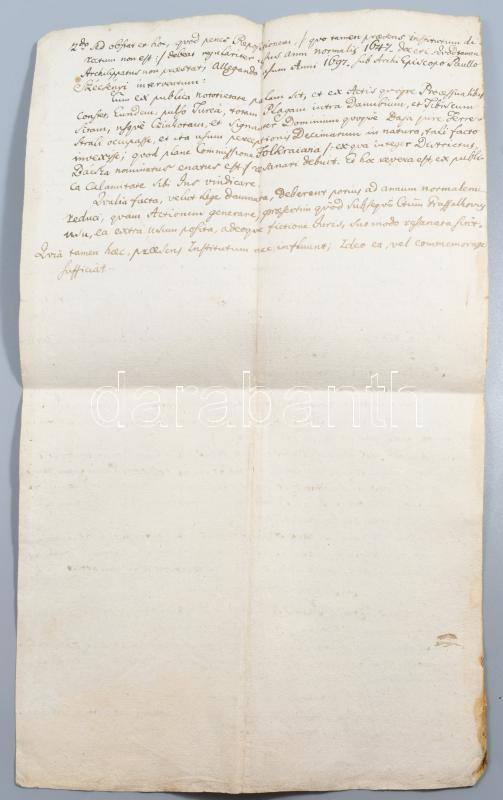 2do Ad obstat et hoc, quod penes Repositionem, /: quo tamen præsens Institutum di-
rectum non est :/ debeat regulariter usus anni normalis 1647.
Archiepiscopatus non præstat; Allegando usum Anni 1697. sub Archi Episcopo Paullo
Szecsenyi interventum:
Cum ex publica notorietate palam sit, et ex Actis quoque Processualibus
Constet, Eundem, pulso Turca, totam Plagam intra Danubium, et Tibiscum
Sitam, usque Csukotam, et Signanter Dominium quoque Baja pure Terre-
strali occupasse, et ita usum perceptionis Decimarum in natura, tali facto
invexisse; quod plane Commissione /: ex qua integer Districtus,
Bacska nominatus enatus est :/ resanari debuit. Et hoc revera est, ex publi-
ca Calamitate Sibi Jus vindicare.
Qualia facta, velut lege damnata, deberent potius ad annum normalem
reduci, quam Actionem generare, præsertim quod Subsequo Comitum Grassalkovics
usu, ea extra usum posita, adeoque fictione Juris, suo modo resanata sint.
Quia tamen hæc, præsens Institutum nec influunt; Ideo ea, vel commemorasse
sufficiat
darabanth